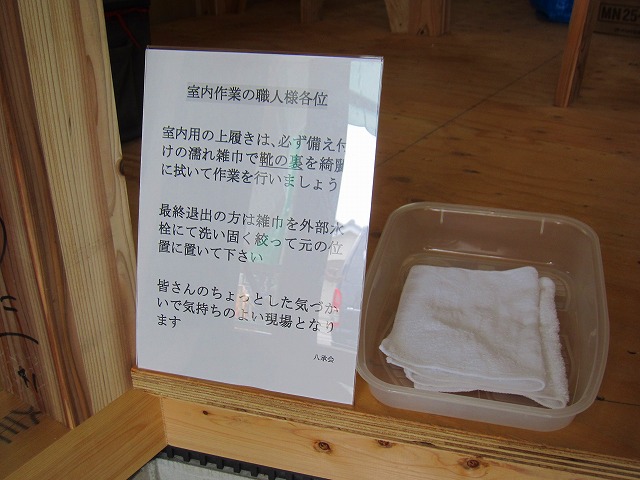 室内作業の職人様各位
室内用の上履きは、必ず備え付
けの濡れ雑巾で靴の裏を綺麗
に拭いて作業を行いましょう
最終退出の方は雑巾を外部水
栓にて洗い固く絞って元の位
置に置いて下さい
皆さんのちょっとした気づか
いで気持ちのよい現場となり
ます
八承会
MN25